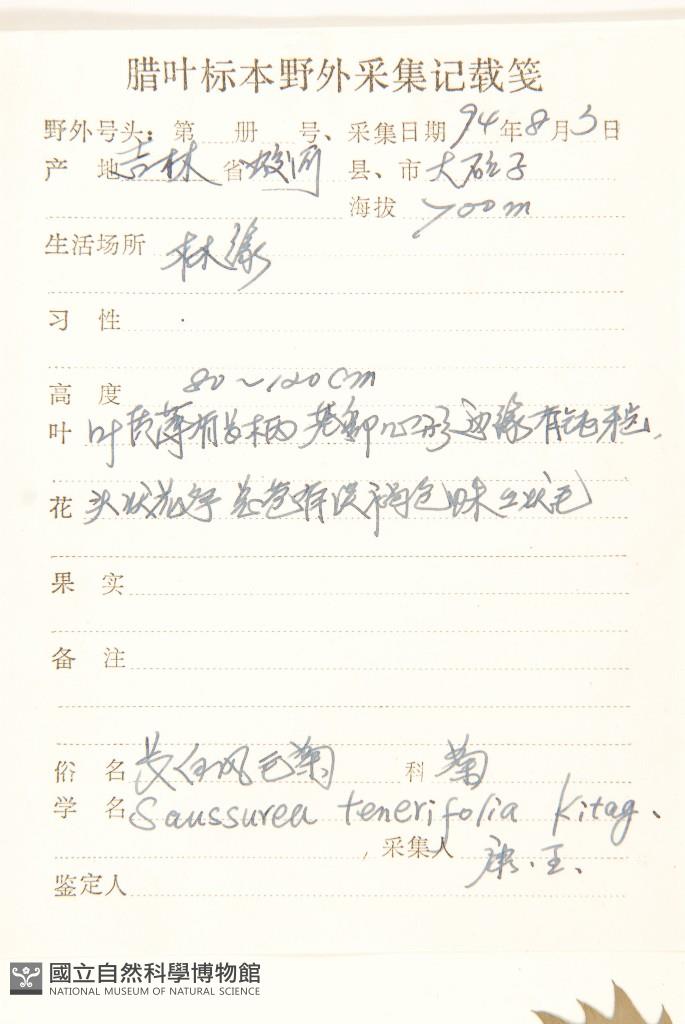 腊叶标本野外采集记载笺
野外号头：第 册 号、采集日期 94年8月3日
产 地 吉林 省 蛟河 县、市 大砬子
海拔 700m
生活场所 林缘
习 性
高 度 80～120cm
叶 叶质薄有长柄 基部心形 边缘有锯牙齿.
花 头状花序 总苞有淡褐色
果 实
备 注
俗 名 长白风毛菊 科 菊
学 名 Saussurea tenerifolia Kitag、
，采集人 王、
鉴定人
國立自然科學博物館
NATIONAL MUSEUM OF NATURAL SCIENCE